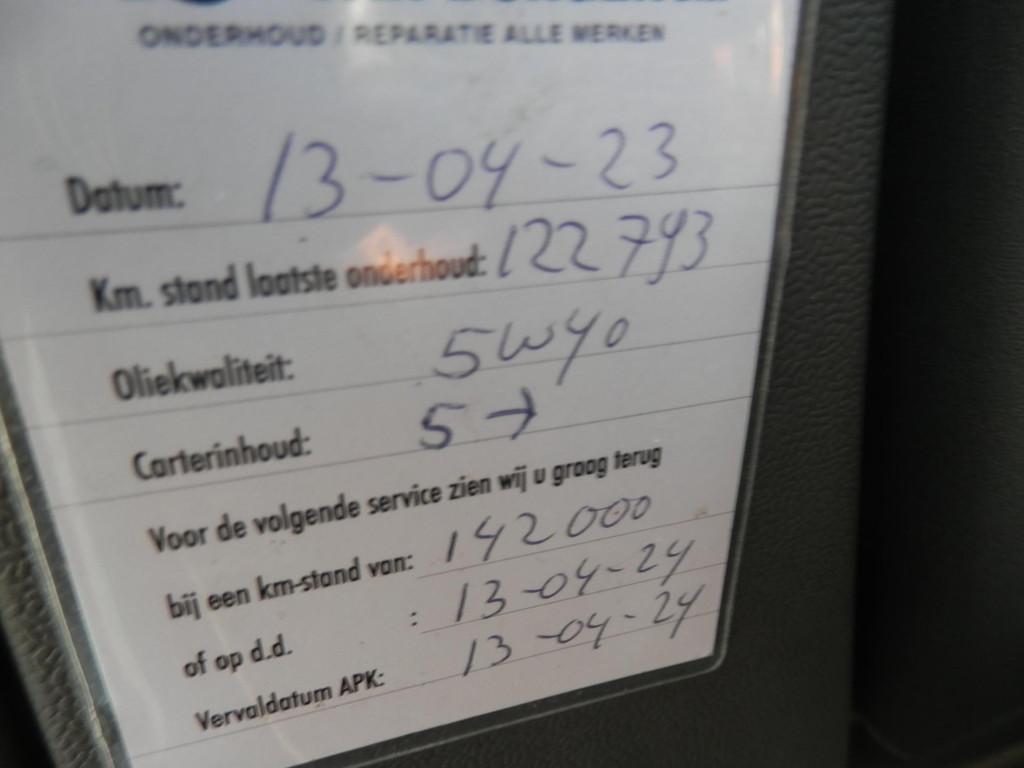 ONDERHOUD / REPARATIE ALLE MERKEN
Datum: 13-04-23
Km. stand laatste onderhoud: 122793
Oliekwaliteit: 5W40
Carterinhoud: 5 →
Voor de volgende service zien wij u graag terug
bij een km-stand van: 142000
of op d.d. : 13-04-24
Vervaldatum APK: 13-04-24